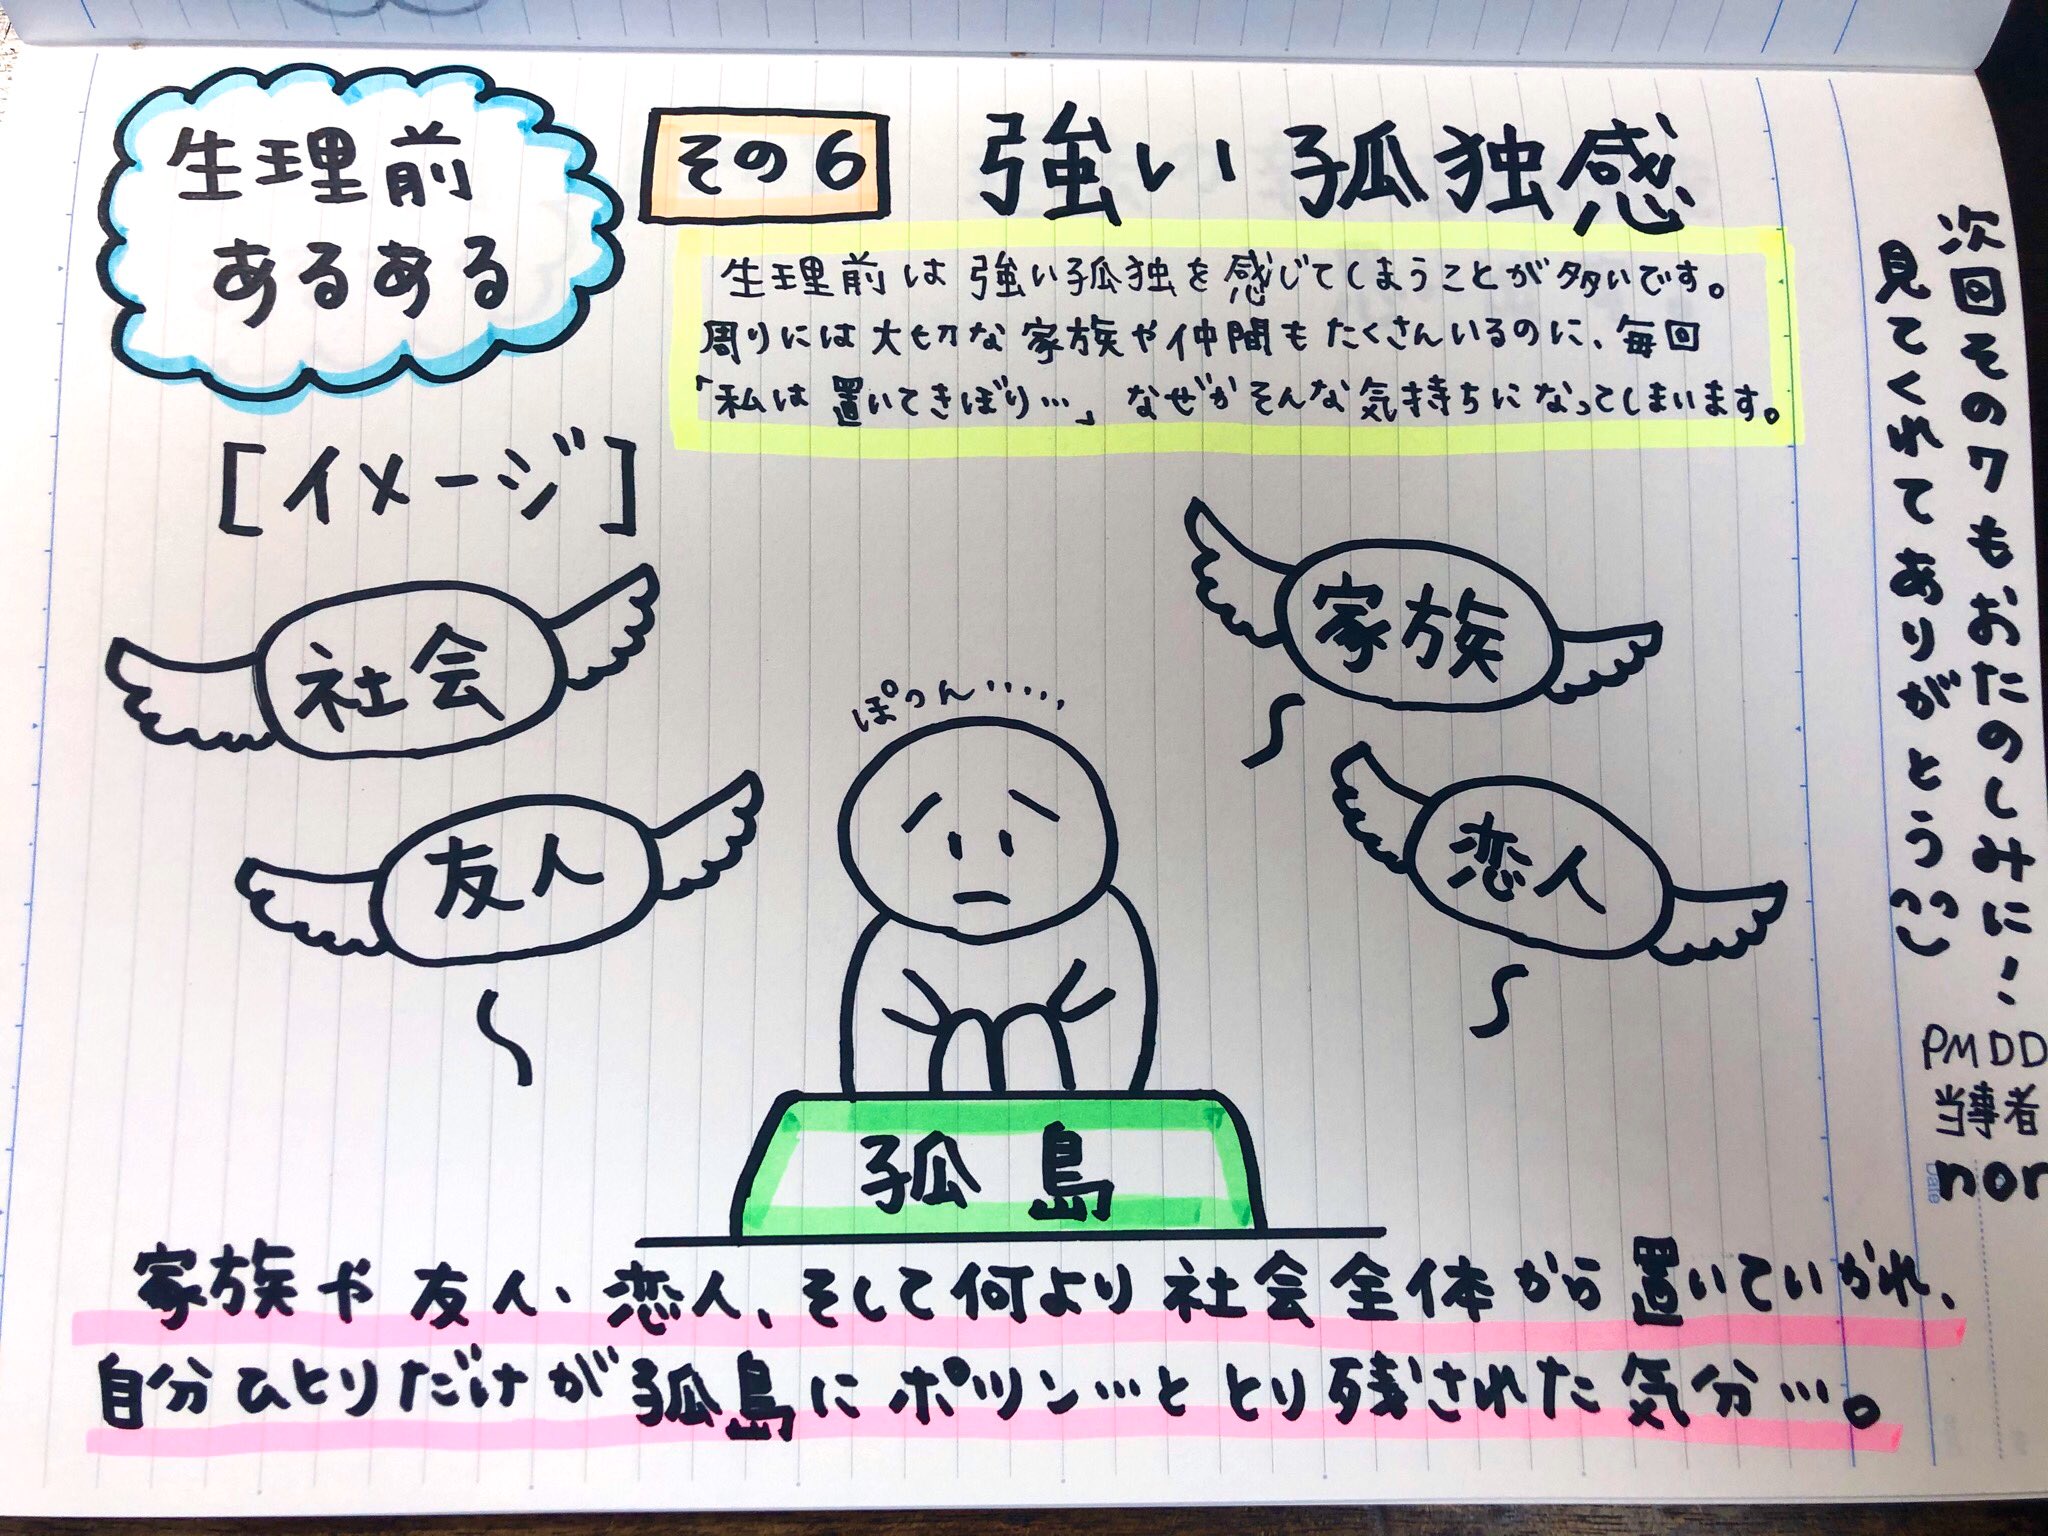 生理前
あるある
その6
強い孤独感
生理前は強い孤独を感じてしまうことが多いです。
周りには大切な家族や仲間もたくさんいるのに、毎回
「私は置いてきぼり…」なぜかそんな気持ちになってしまいます。
[イメージ]
社会
友人
家族
恋人
ぽつん……
孤島
家族や友人、恋人、そして何より社会全体から置いていかれ、
自分ひとりだけが孤島にポツン…ととり残された気分…。
次回その7もおたのしみに!
見てくれてありがとう
PMDD
当事者
nor
Date